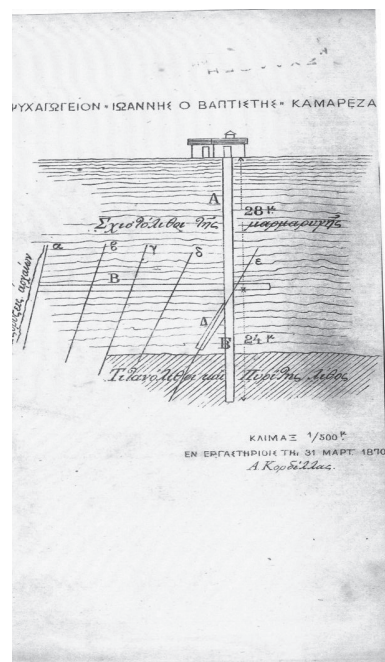 ΨΥΧΑΓΩΓΕΙΟΝ "ΙΩΑΝΝΗΣ Ο ΒΑΠΤΙΣΤΗΣ" ΚΑΜΑΡΕΖΑ
Α
28 μ
Σχιστόλιθοι τῆς μαρμαρυγῆς
α β γ δ ε
Β
ἀρχαίων
Δ
Ε
24 μ
Τιτανόλιθοι καὶ Πυρίτης λίθος
ΚΛΙΜΑΞ 1/500 μ
ΕΝ ΕΡΓΑΣΤΗΡΙΟΙΣ ΤΗι 31 ΜΑΡΤ. 1870
Α. Κορδέλλας.